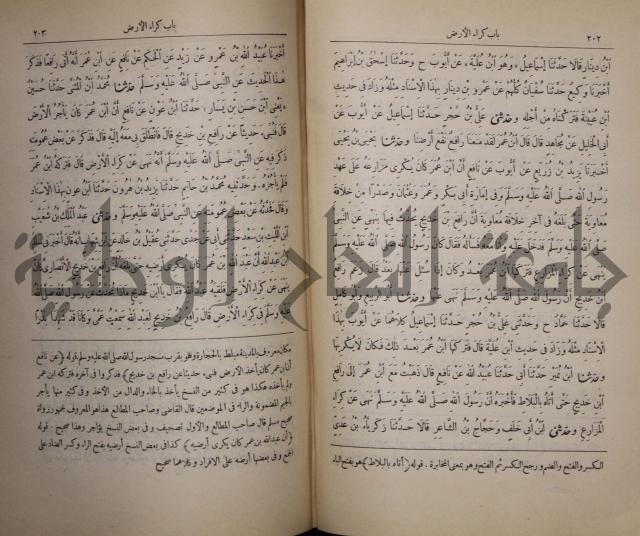 باب كراء الأرض
٢٠٢
ابْنُ دِينَارٍ قَالَا حَدَّثَنَا إِسْمَاعِيلُ، وَهُوَ ابْنُ عُلَيَّةَ، عَنْ أَيُّوبَ ح وَحَدَّثَنَا إِسْحَقُ بْنُ إِبْرَاهِيمَ
أَخْبَرَنَا وَكِيعٌ حَدَّثَنَا سُفْيَانُ كُلُّهُمْ عَنْ عَمْرِو بْنِ دِينَارٍ بِهَذَا الْإِسْنَادِ مِثْلَهُ وَزَادَ فِي حَدِيثِ
ابْنِ عُيَيْنَةَ فَتَرَكْنَاهُ مِنْ أَجْلِهِ وحدثني عَلِيُّ بْنُ حُجْرٍ حَدَّثَنَا إِسْمَاعِيلُ عَنْ أَيُّوبَ عَنْ
أَبِي الْخَلِيلِ عَنْ مُجَاهِدٍ قَالَ قَالَ ابْنُ عُمَرَ لَقَدْ مَنَعَنَا رَافِعٌ نَفْعَ أَرْضِنَا وحدثنا يَحْيَى بْنُ يَحْيَى
أَخْبَرَنَا يَزِيدُ بْنُ زُرَيْعٍ عَنْ أَيُّوبَ عَنْ نَافِعٍ أَنَّ ابْنَ عُمَرَ كَانَ يُكْرِي مَزَارِعَهُ عَلَى عَهْدِ
رَسُولِ اللهِ صَلَّى اللهُ عَلَيْهِ وَسَلَّمَ وَفِي إِمَارَةِ أَبِي بَكْرٍ وَعُمَرَ وَعُثْمَانَ وَصَدْرًا مِنْ خِلَافَةِ
مُعَاوِيَةَ حَتَّى بَلَغَهُ فِي آخِرِ خِلَافَةِ مُعَاوِيَةَ أَنَّ رَافِعَ بْنَ خَدِيجٍ يُحَدِّثُ فِيهَا بِنَهْيٍ عَنِ النَّبِيِّ
صَلَّى اللهُ عَلَيْهِ وَسَلَّمَ فَدَخَلَ عَلَيْهِ وَأَنَا مَعَهُ فَسَأَلَهُ فَقَالَ كَانَ رَسُولُ اللهِ صَلَّى اللهُ عَلَيْهِ وَسَلَّمَ
يَنْهَى عَنْ كِرَاءِ الْمَزَارِعِ فَتَرَكَهَا ابْنُ عُمَرَ بَعْدُ وَكَانَ إِذَا سُئِلَ عَنْهَا بَعْدُ قَالَ زَعَمَ رَافِعُ
ابْنُ خَدِيجٍ أَنَّ رَسُولَ اللهِ صَلَّى اللهُ عَلَيْهِ وَسَلَّمَ نَهَى عَنْهَا وحدثنا أَبُو الرَّبِيعِ وَأَبُو كَامِلٍ
قَالَا حَدَّثَنَا حَمَّادٌ ح وَحَدَّثَنِي عَلِيُّ بْنُ حُجْرٍ حَدَّثَنَا إِسْمَاعِيلُ كِلَاهُمَا عَنْ أَيُّوبَ بِهَذَا
الْإِسْنَادِ مِثْلَهُ وَزَادَ فِي حَدِيثِ ابْنِ عُلَيَّةَ قَالَ فَتَرَكَهَا ابْنُ عُمَرَ بَعْدَ ذَلِكَ فَكَانَ لَا يُكْرِيهَا
وحدثنا ابْنُ نُمَيْرٍ حَدَّثَنَا أَبِي حَدَّثَنَا عُبَيْدُ اللهِ عَنْ نَافِعٍ قَالَ ذَهَبْتُ مَعَ ابْنِ عُمَرَ إِلَى رَافِعِ
ابْنِ خَدِيجٍ حَتَّى أَتَاهُ بِالْبَلَاطِ فَأَخْبَرَهُ أَنَّ رَسُولَ اللهِ صَلَّى اللهُ عَلَيْهِ وَسَلَّمَ نَهَى عَنْ كِرَاءِ
الْمَزَارِعِ وحدثني ابْنُ أَبِي خَلَفٍ وَحَجَّاجُ بْنُ الشَّاعِرِ قَالَا حَدَّثَنَا زَكَرِيَّاءُ بْنُ عَدِيٍّ
الكسر والفتح والضم ورجح الكسر ثم الفتح وهو بمعنى المخابرة . قوله (أتاه بالبلاط) هو بفتح الباء
باب كراء الأرض
٢٠٣
أَخْبَرَنَا عُبَيْدُ اللهِ بْنُ عَمْرٍو عَنْ زَيْدٍ عَنِ الْحَكَمِ عَنْ نَافِعٍ عَنِ ابْنِ عُمَرَ أَنَّهُ أَتَى رَافِعًا فَذَكَرَ
هَذَا الْحَدِيثَ عَنِ النَّبِيِّ صَلَّى اللهُ عَلَيْهِ وَسَلَّمَ حدثنا مُحَمَّدُ ابْنُ الْمُثَنَّى حَدَّثَنَا حُسَيْنٌ
«يَعْنِي ابْنَ حَسَنِ بْنِ يَسَارٍ» حَدَّثَنَا ابْنُ عَوْنٍ عَنْ نَافِعٍ أَنَّ ابْنَ عُمَرَ كَانَ يَأْجُرُ الْأَرْضَ
قَالَ فَنُبِّئَ حَدِيثًا عَنْ رَافِعِ بْنِ خَدِيجٍ قَالَ فَانْطَلَقَ بِي مَعَهُ إِلَيْهِ قَالَ فَذَكَرَ عَنْ بَعْضِ عُمُومَتِهِ
ذَكَرَ فِيهِ عَنِ النَّبِيِّ صَلَّى اللهُ عَلَيْهِ وَسَلَّمَ أَنَّهُ نَهَى عَنْ كِرَاءِ الْأَرْضِ قَالَ فَتَرَكَهُ ابْنُ عُمَرَ
فَلَمْ يَأْجُرْهُ. وَحَدَّثَنِيهِ مُحَمَّدُ بْنُ حَاتِمٍ حَدَّثَنَا يَزِيدُ بْنُ هَرُونَ حَدَّثَنَا ابْنُ عَوْنٍ بِهَذَا الْإِسْنَادِ
وَقَالَ فَحَدَّثَهُ عَنْ بَعْضِ عُمُومَتِهِ عَنِ النَّبِيِّ صَلَّى اللهُ عَلَيْهِ وَسَلَّمَ وحدثني عَبْدُ الْمَلِكِ بْنُ شُعَيْبِ
ابْنِ اللَّيْثِ بْنِ سَعْدٍ حَدَّثَنِي أَبِي عَنْ جَدِّي حَدَّثَنِي عُقَيْلُ بْنُ خَالِدٍ عَنِ ابْنِ شِهَابٍ أَنَّهُ قَالَ أَخْبَرَنِي سَالِمُ
ابْنُ عَبْدِ اللهِ أَنَّ عَبْدَ اللهِ بْنَ عُمَرَ كَانَ يُكْرِي أَرْضِيهِ حَتَّى بَلَغَهُ أَنَّ رَافِعَ بْنَ خَدِيجٍ الْأَنْصَارِيَّ كَانَ
يَنْهَى عَنْ كِرَاءِ الْأَرْضِ فَلَقِيَهُ عَبْدُ اللهِ فَقَالَ يَا ابْنَ خَدِيجٍ مَاذَا تُحَدِّثُ عَنْ رَسُولِ اللهِ صَلَّى اللهُ
عَلَيْهِ وَسَلَّمَ فِي كِرَاءِ الْأَرْضِ قَالَ رَافِعُ بْنُ خَدِيجٍ لِعَبْدِ اللهِ سَمِعْتُ عَمَّيَّ وَكَانَا قَدْ شَهِدَا بَدْرًا
مكان معروف بالمدينة مبلط بالحجارة وهو بقرب مسجد رسول الله صلى الله عليه وسلم. قوله (عن نافع
أن ابن عمر كان يأجر الأرض فنبىء حديثا عن رافع بن خديج) فذكروا فى آخره فتركه ابن عمر
ولم يأخذه هكذا هو فى كثير من النسخ يأخذ بالخاء والذال من الأخذ وفى كثير منها يأجر
الجيم المضمومة والراء فى الموضعين قال القاضى وصاحب المطالع هذا هو المعروف لجمهور رواة
صحيح مسلم قال صاحب المطالع والأول تصحيف وفى بعض النسخ يؤاجر وهذا صحيح . قوله
(أن عبد الله بن عمر كان يكرى أرضيه) كذا فى بعض النسخ أرضيه بفتح الراء وكسر الضاد على
الجمع وفى بعضها أرضه على الافراد وكلاهما صحيح
جامعة النجاح الوطنية